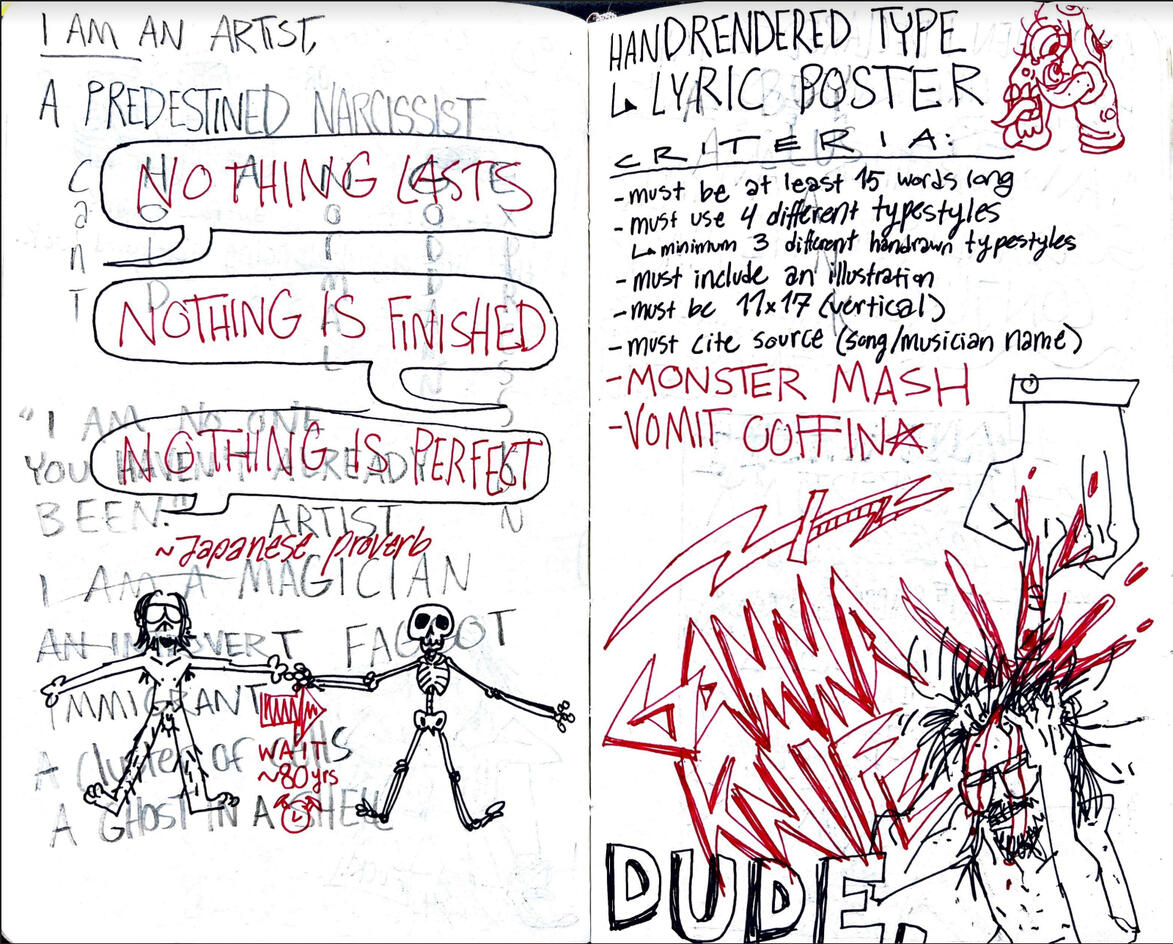 I AM AN ARTIST,
A PREDESTINED NARCISSIST
Can T
NOTHING LASTS
NOTHING IS FINISHED
"I AM NO ONE
YOU HAVEN'T ALREADY
BEEN."
NOTHING IS PERFECT
~Japanese proverb
ARTIST
I AM A MAGICIAN
AN INTROVERT FAGGOT
IMMIGRANT
A Cluster of cells
A GHOST IN A SHELL
WAIT
~80 yrs
HANDRENDERED TYPE
LYRIC POSTER
CRITERIA:
-must be at least 15 words long
-must use 4 different typestyles
minimum 3 different handrawn typestyles
-must include an illustration
-must be 11x17 (vertical)
-must cite source (song/musician name)
-MONSTER MASH
-VOMIT COFFINA
GAMMA
KNIFE
DUDE,